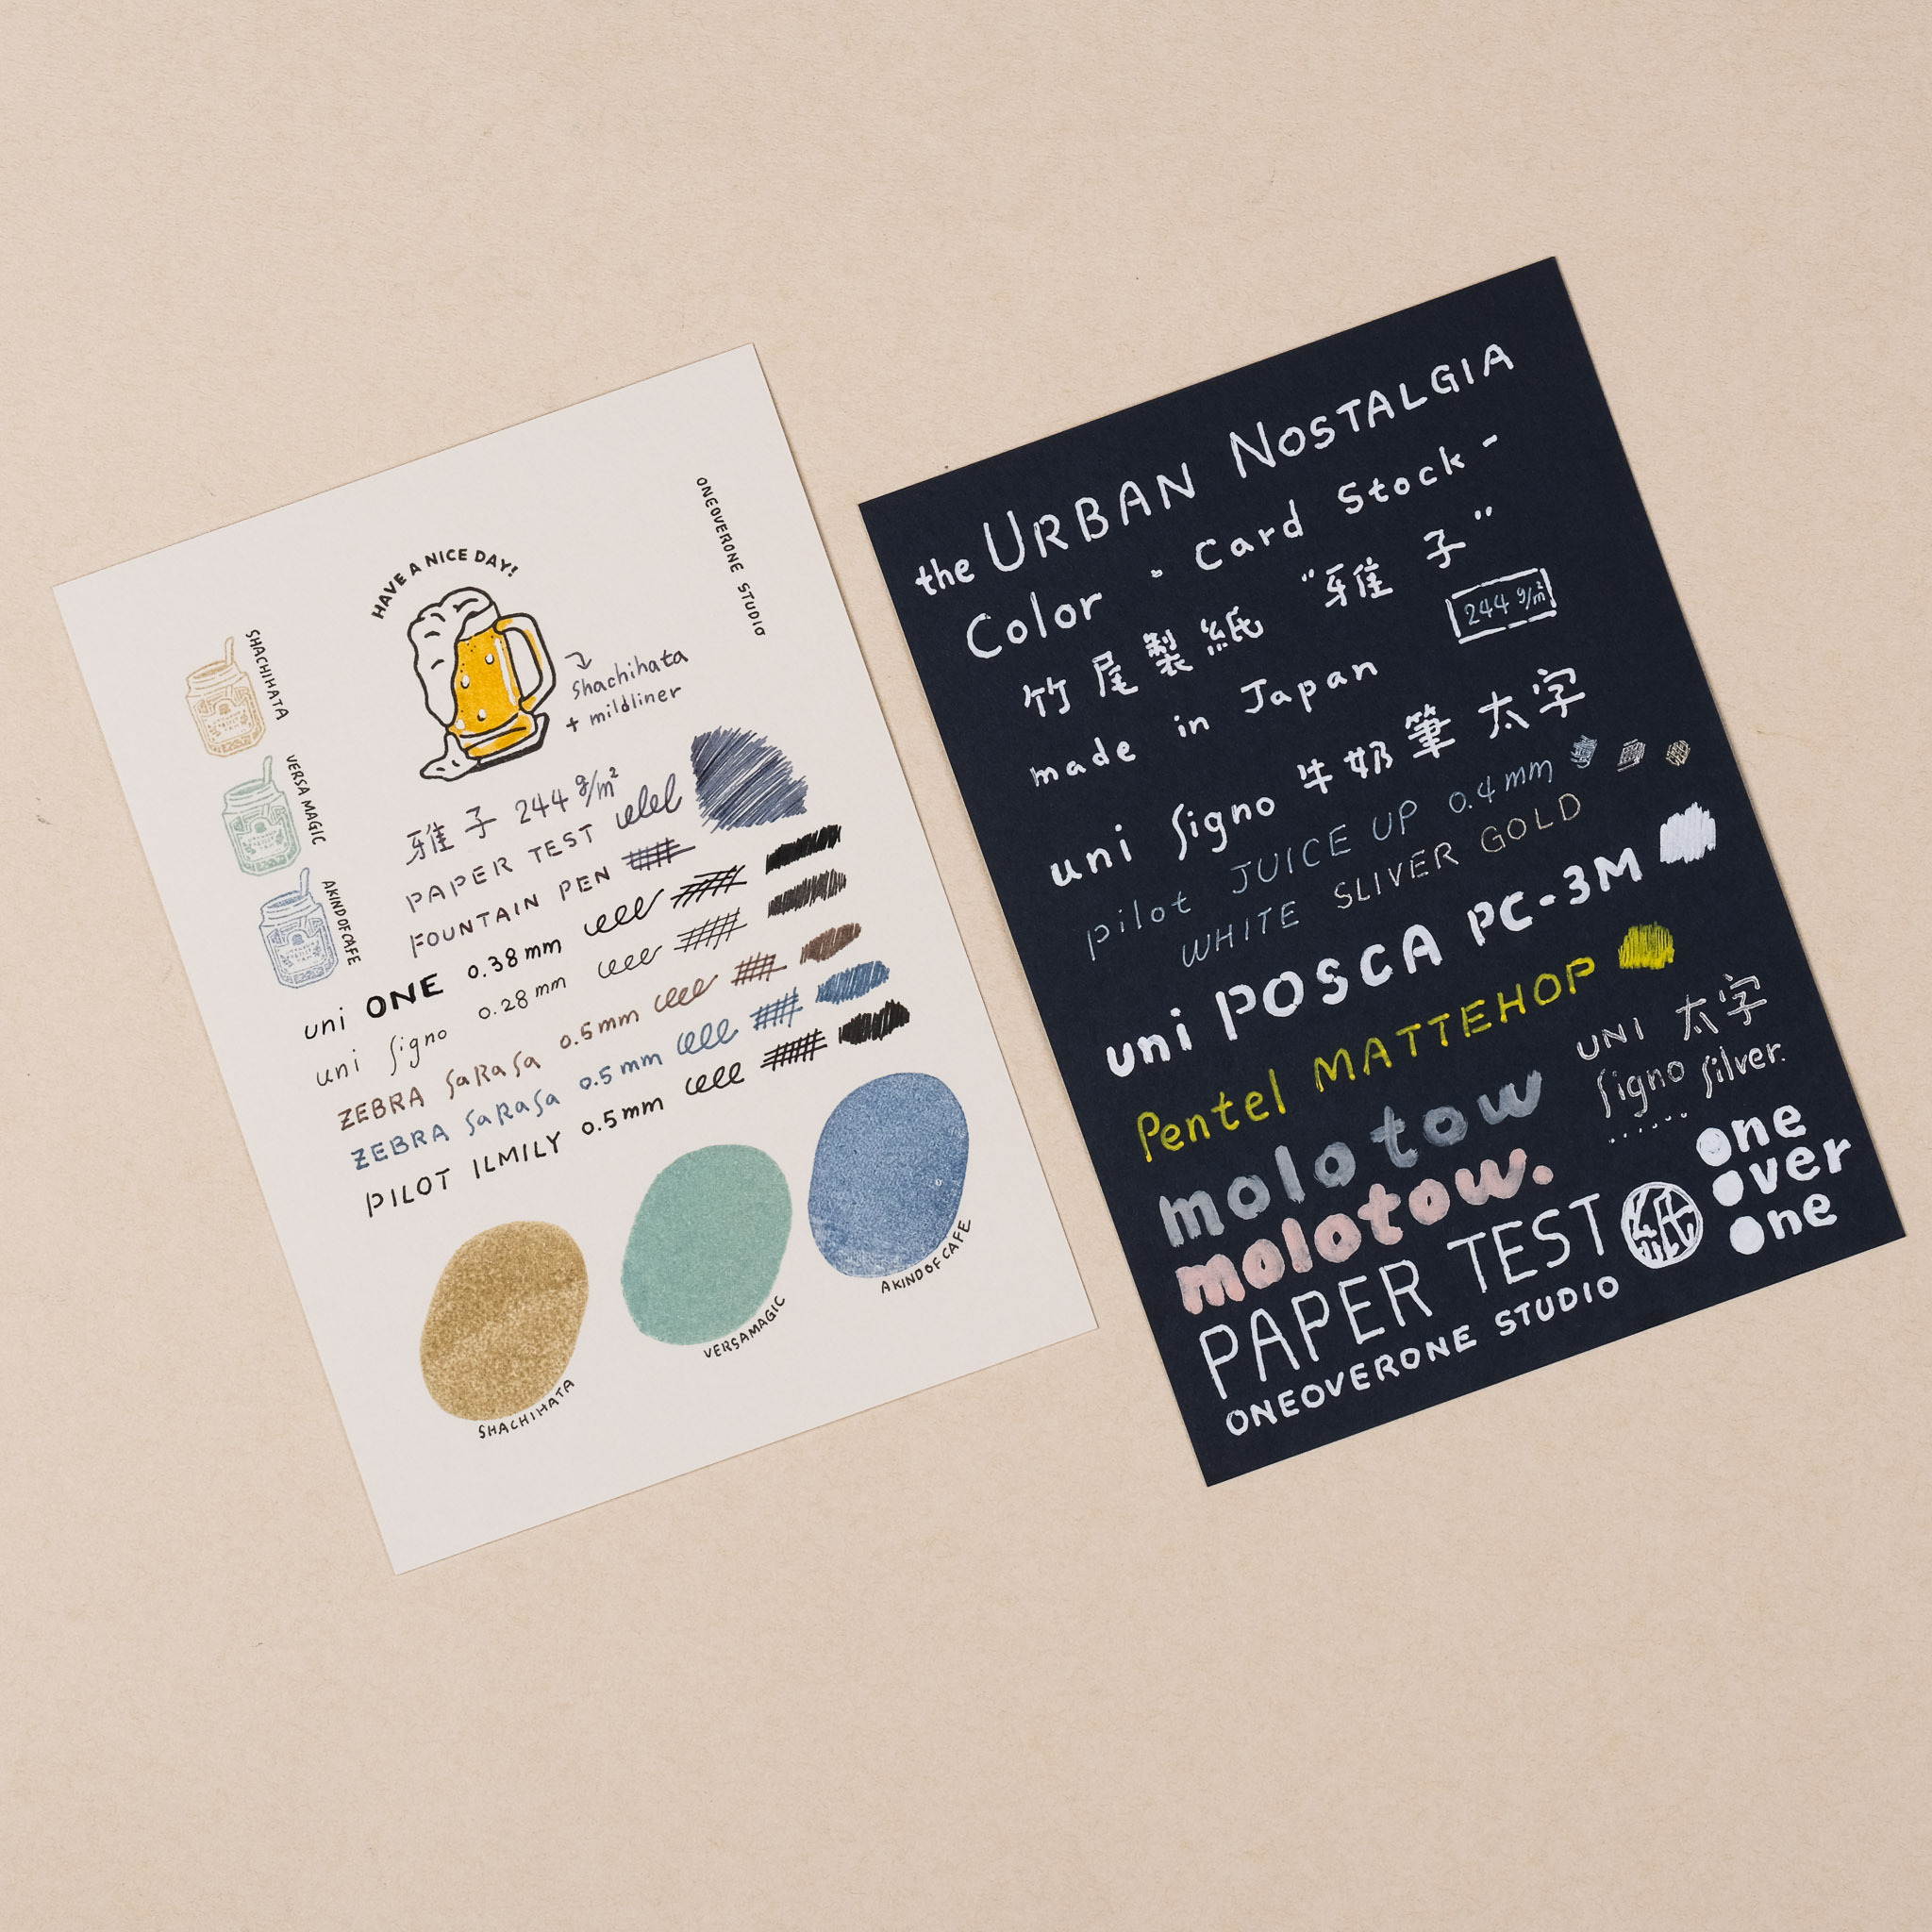 HAVE A NICE DAY!
ONEOVERONE STUDIO
Shachihata
+ mildliner
SHACHIHATA
VERSA MAGIC
AKINDOFCAFE
雅子 244 g/m²
PAPER TEST
FOUNTAIN PEN
uni ONE 0.38mm
uni Signo 0.28mm
ZEBRA SaRaSa 0.5mm
ZEBRA SaRaSa 0.5mm
PILOT ILMILY 0.5mm
SHACHIHATA
VERSAMAGIC
AKINDOFCAFE
the URBAN NOSTALGIA
Color · Card Stock -
竹尾製紙 "雅子"
made in Japan
244 g/m²
uni Signo 牛奶筆 太字
pilot JUICE UP 0.4mm
WHITE SLIVER GOLD
uni POSCA PC-3M
Pentel MATTEHOP
UNI 太字
Signo Silver.
molotow
molotow.
PAPER TEST
紙
one
over
one
ONEOVERONE STUDIO